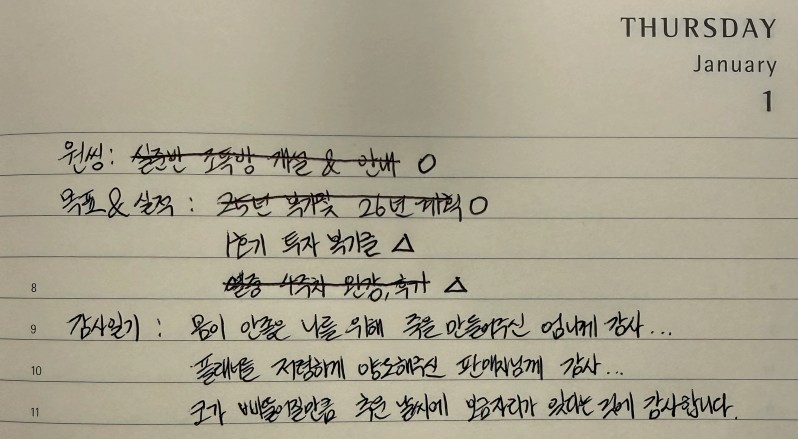 THURSDAY
January
1
원씽: 실준반 조톡방 개설 & 안내 O
목표 & 실적 : 25년 복기및 26년 계획 O
1호기 투자 복기글 △
8 열중 4주차 완강, 후기 △
9 감사일기 : 몸이 안좋은 나를 위해 죽을 만들어주신 엄니께 감사...
10 플래너를 저렴하게 양도해주신 판매자님께 감사...
11 코가 삐뚤어질만큼 추운 날씨에 보금자리가 있다는 것에 감사합니다.